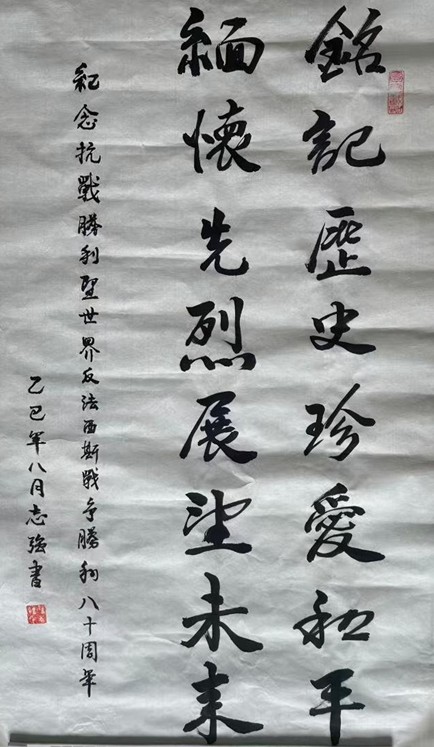 銘記歷史珍愛和平
緬懷先烈展望未来
紀念抗戰勝利暨世界反法西斯戰争勝利八十周年
乙巳年八月志强書